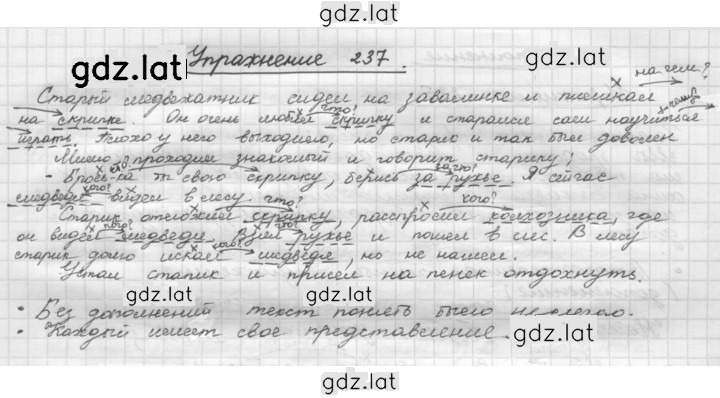 gdz.lat
gdz.lat
Упражнение 237.
на чем?
Старый медвежатник сидел на завалинке и пиликал
что? чему?
на скрипке. Он очень любил скрипку и старался сам научиться
играть. Плохо у него выходило, но старик и так был доволен
Мимо проходил знакомый и говорит старику:
что? за что?
- Брось-ка ты свою скрипку, берись за ружье. Я сейчас
кого? что? кого?
медведя видел в лесу.
Старик отложил скрипку, расспросил колхозника, где
кого? что?
он видел медведя. Взял ружье и пошел в лес. В лесу
кого?
старик долго искал медведя, но не нашел.
Устал старик и присел на пенек отдохнуть.
gdz.lat
gdz.lat
• Без дополнений текст понять было нелегко.
• Каждый имеет свое представление.
gdz.lat
gdz.lat